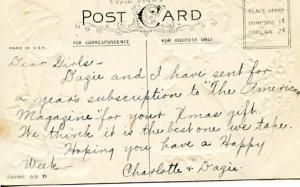 POST CARD
PLACE STAMP
DOMESTIC 1¢
FOREIGN 2¢
MADE IN U.S.A.
FOR CORRESPONDENCE
FOR ADDRESS ONLY
Dear Girls -
Dazie and I have sent for
a years subscription to "The American
Magazine for your Xmas gift.
We think it is the best one we take.
Hoping you have a Happy
Week
Charlotte & Dazie.
SERIES 69 D